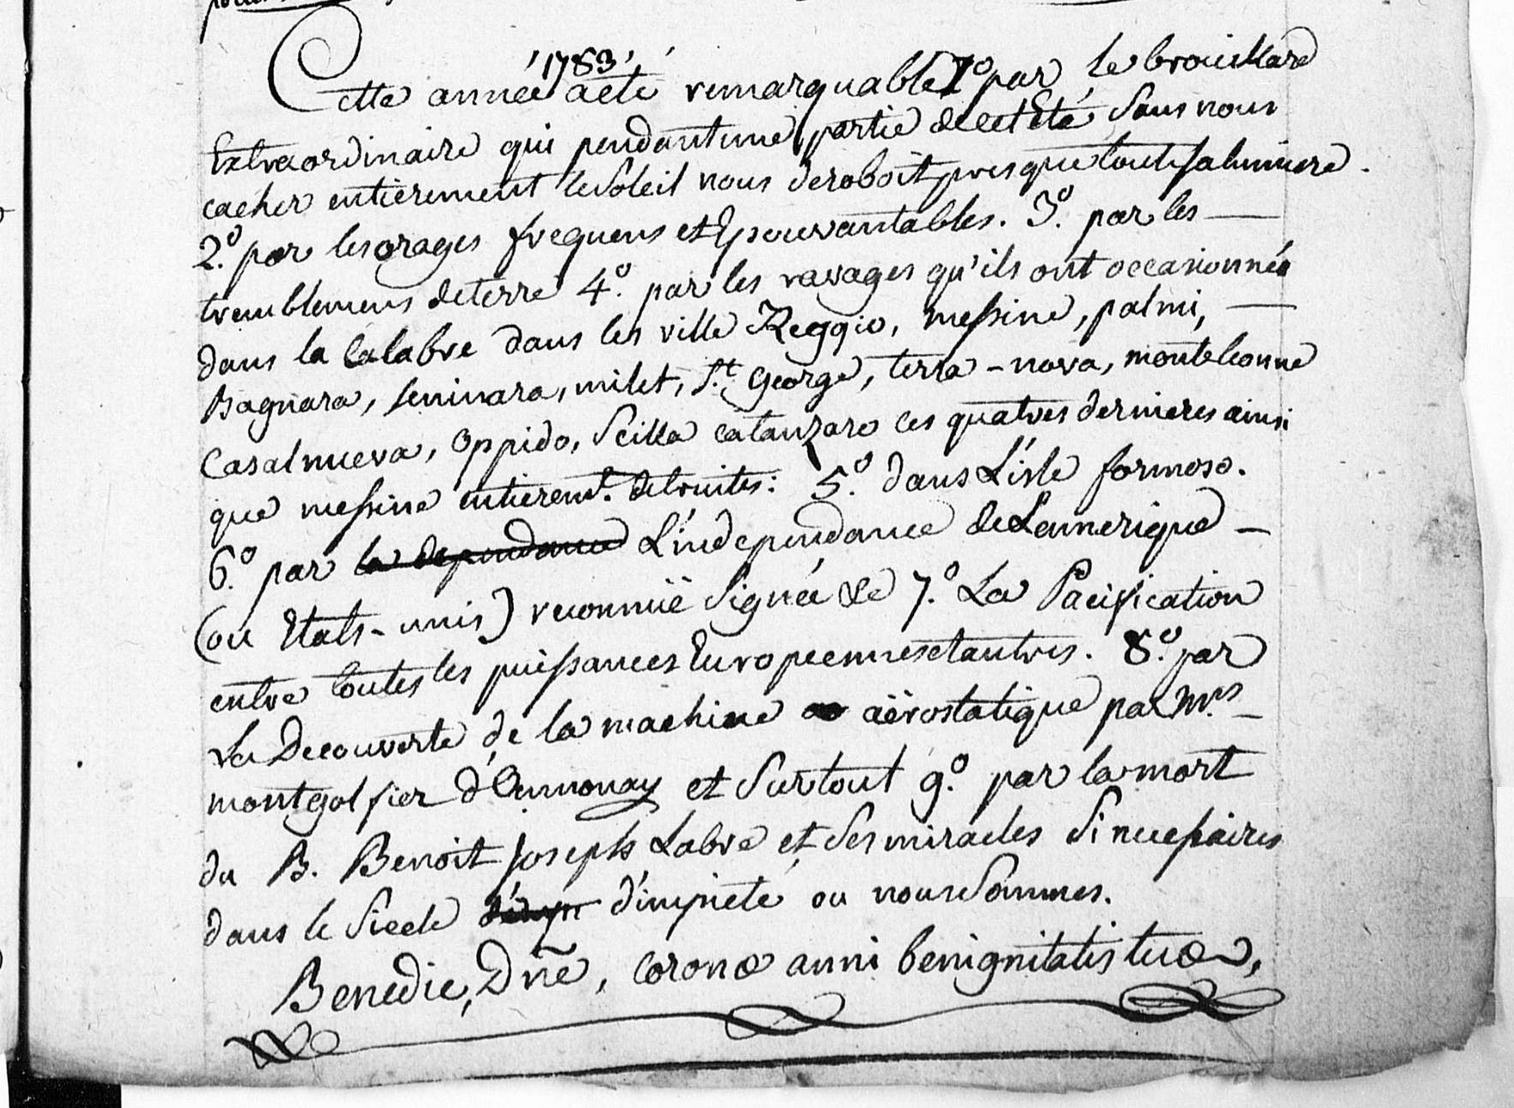 Cette année 1783 a été remarquable 1º par le brouillard
Extraordinaire qui pendant une partie de cet Eté Sans nous
cacher entièrement le Soleil nous deroboit presque toute sa lumiere.
2.º par les orages frequens et Epouvantables. 3.º par les —
tremblemens de terre 4.º par les ravages qu'ils ont occasionnés
dans la Calabre dans les ville Reggio, messine, palmi, —
Bagnara, seminara, milet, St. George, terra-nova, monteleonne
Casalnueva, Oppido, Scilla catanzaro ces quatres dernieres ainsi
que messine entierem.t detruites: 5.º dans L'isle formose.
6.º par la dependance L'independance de L'amerique —
(ou Etats-unis) reconnuë Signée le 7.º La Pacification
entre toutes les puissances Europeennes et autres. 8.º par
La Decouverte de la machine aërostatique par Mrs —
montgolfier d'Annonay et Surtout 9.º par la mort
du B. Benoit joseph Labre et Ses miracles Si necessaires
dans le Siecle d'imp d'impieté ou nous Sommes.
Benedic, Dñe, coronæ anni benignitatis tuæ,